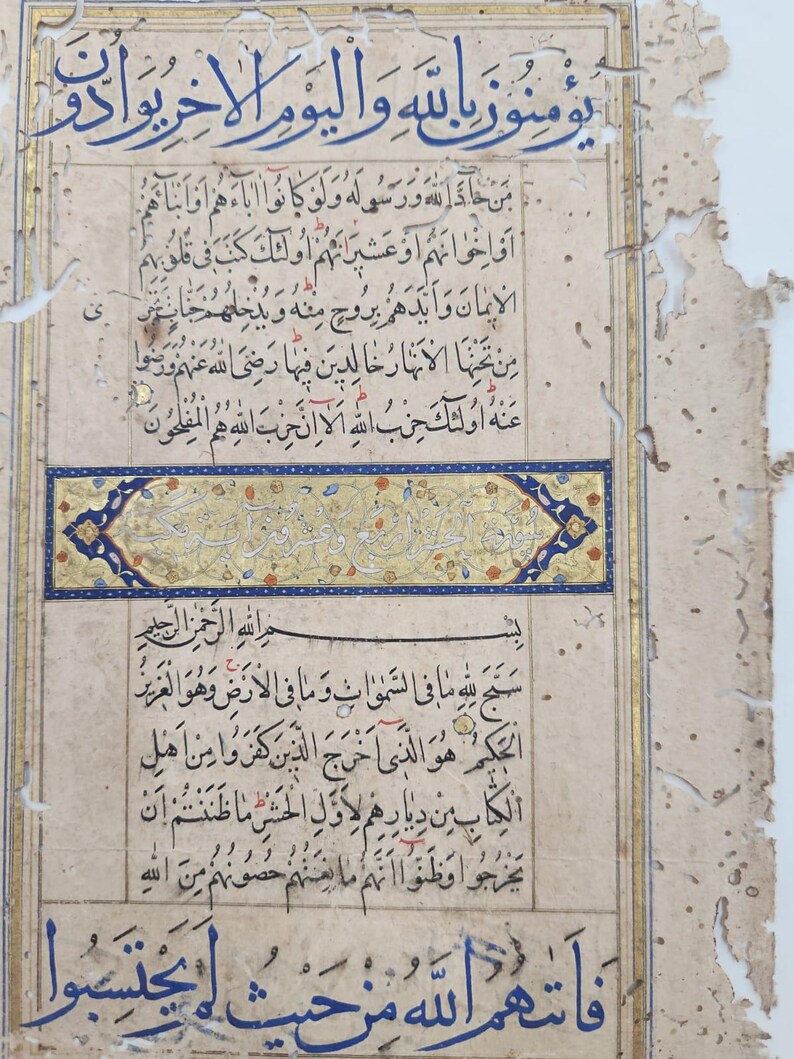 يُؤْمِنُونَ بِاللَّهِ وَالْيَوْمِ الْاٰخِرِ يُوَادُّونَ
مَنْ حَادَّ اللَّهَ وَرَسُولَهُ وَلَوْ كَانُوا اٰبَاءَهُمْ اَوْ اَبْنَاءَهُمْ
اَوْ اِخْوَانَهُمْ اَوْ عَشِيرَتَهُمْ اُولٰئِكَ كَتَبَ فِى قُلُوبِهِمُ
الْاِيمَانَ وَاَيَّدَهُمْ بِرُوحٍ مِنْهُ وَيُدْخِلُهُمْ جَنَّاتٍ تَجْرِى
مِنْ تَحْتِهَا الْاَنْهَارُ خَالِدِينَ فِيهَا رَضِىَ اللَّهُ عَنْهُمْ وَرَضُوا
عَنْهُ اُولٰئِكَ حِزْبُ اللَّهِ اَلَا اِنَّ حِزْبَ اللَّهِ هُمُ الْمُفْلِحُونَ
سُورَةُ الْحَشْرِ اَرْبَعَ وَعِشْرُونَ اٰيَةً
بِسْمِ اللَّهِ الرَّحْمٰنِ الرَّحِيمِ
سَبَّحَ لِلَّهِ مَا فِى السَّمٰوَاتِ وَمَا فِى الْاَرْضِ وَهُوَ الْعَزِيزُ
الْحَكِيمُ هُوَ الَّذِى اَخْرَجَ الَّذِينَ كَفَرُوا مِنْ اَهْلِ
الْكِتَابِ مِنْ دِيَارِهِمْ لِاَوَّلِ الْحَشْرِ مَا ظَنَنْتُمْ اَنْ
يَخْرُجُوا وَظَنُّوا اَنَّهُمْ مَانِعَتُهُمْ حُصُونُهُمْ مِنَ اللَّهِ
فَاَتٰىهُمُ اللَّهُ مِنْ حَيْثُ لَمْ يَحْتَسِبُوا